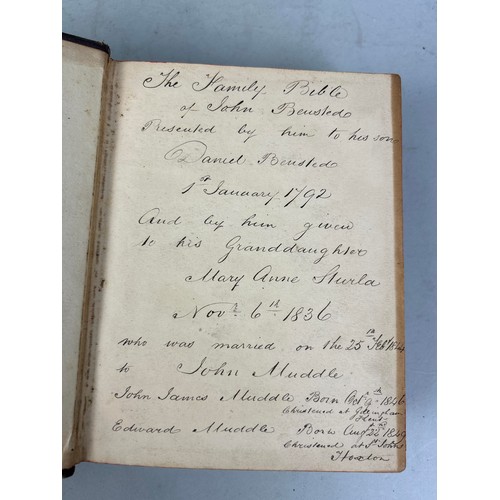 The Family Bible
of John Bensted
Presented by him to his son
Daniel Bensted
1st January 1792
And by him given
to his Granddaughter
Mary Anne Sturla
Novr 6th 1836
who was married on the 25th Feby 1844
to John Muddle
John James Muddle Born Octr 9th 1846
Christened at Gillingham
Kent
Edward Muddle Born Augt 22nd 1849
Christened at St Johns
Hoxton